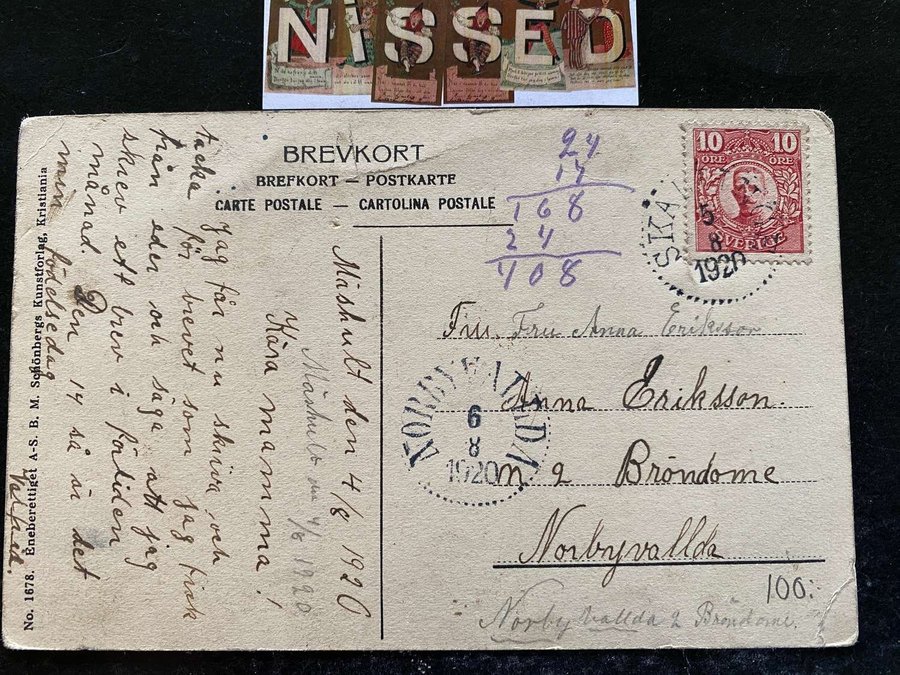 NISSED
BREVKORT
BREFKORT — POSTKARTE
CARTE POSTALE — CARTOLINA POSTALE
24
17
168
24
408
10 10
ÖRE ÖRE
SVERIGE
SKA
5
8
1920
Måshult den 4/8 1920
Måshult den 4/8 1920
Kära mamma!
Jag får nu skriva och
tacka för brevet som jag fick
från eder och säga att jag
skrev ett brev i förliden
månad. Den 14 så är det
min födelsedag
No. 1678. Eneberettiget A-S. B. M. Schönbergs Kunstforlag, Kristiania
NORBYVALLDA
6
8
1920
Fru Fru Anna Eriksson
Anna Eriksson.
n 2 Bröndome
Norbyvallda
100:-
Norby vallda 2 Bröndome.